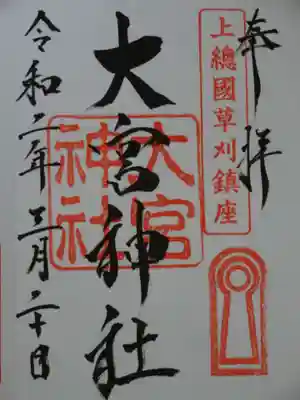 奉拝
上總國草刈鎮座
大宮神社
大宮神社
令和二年三月二十日